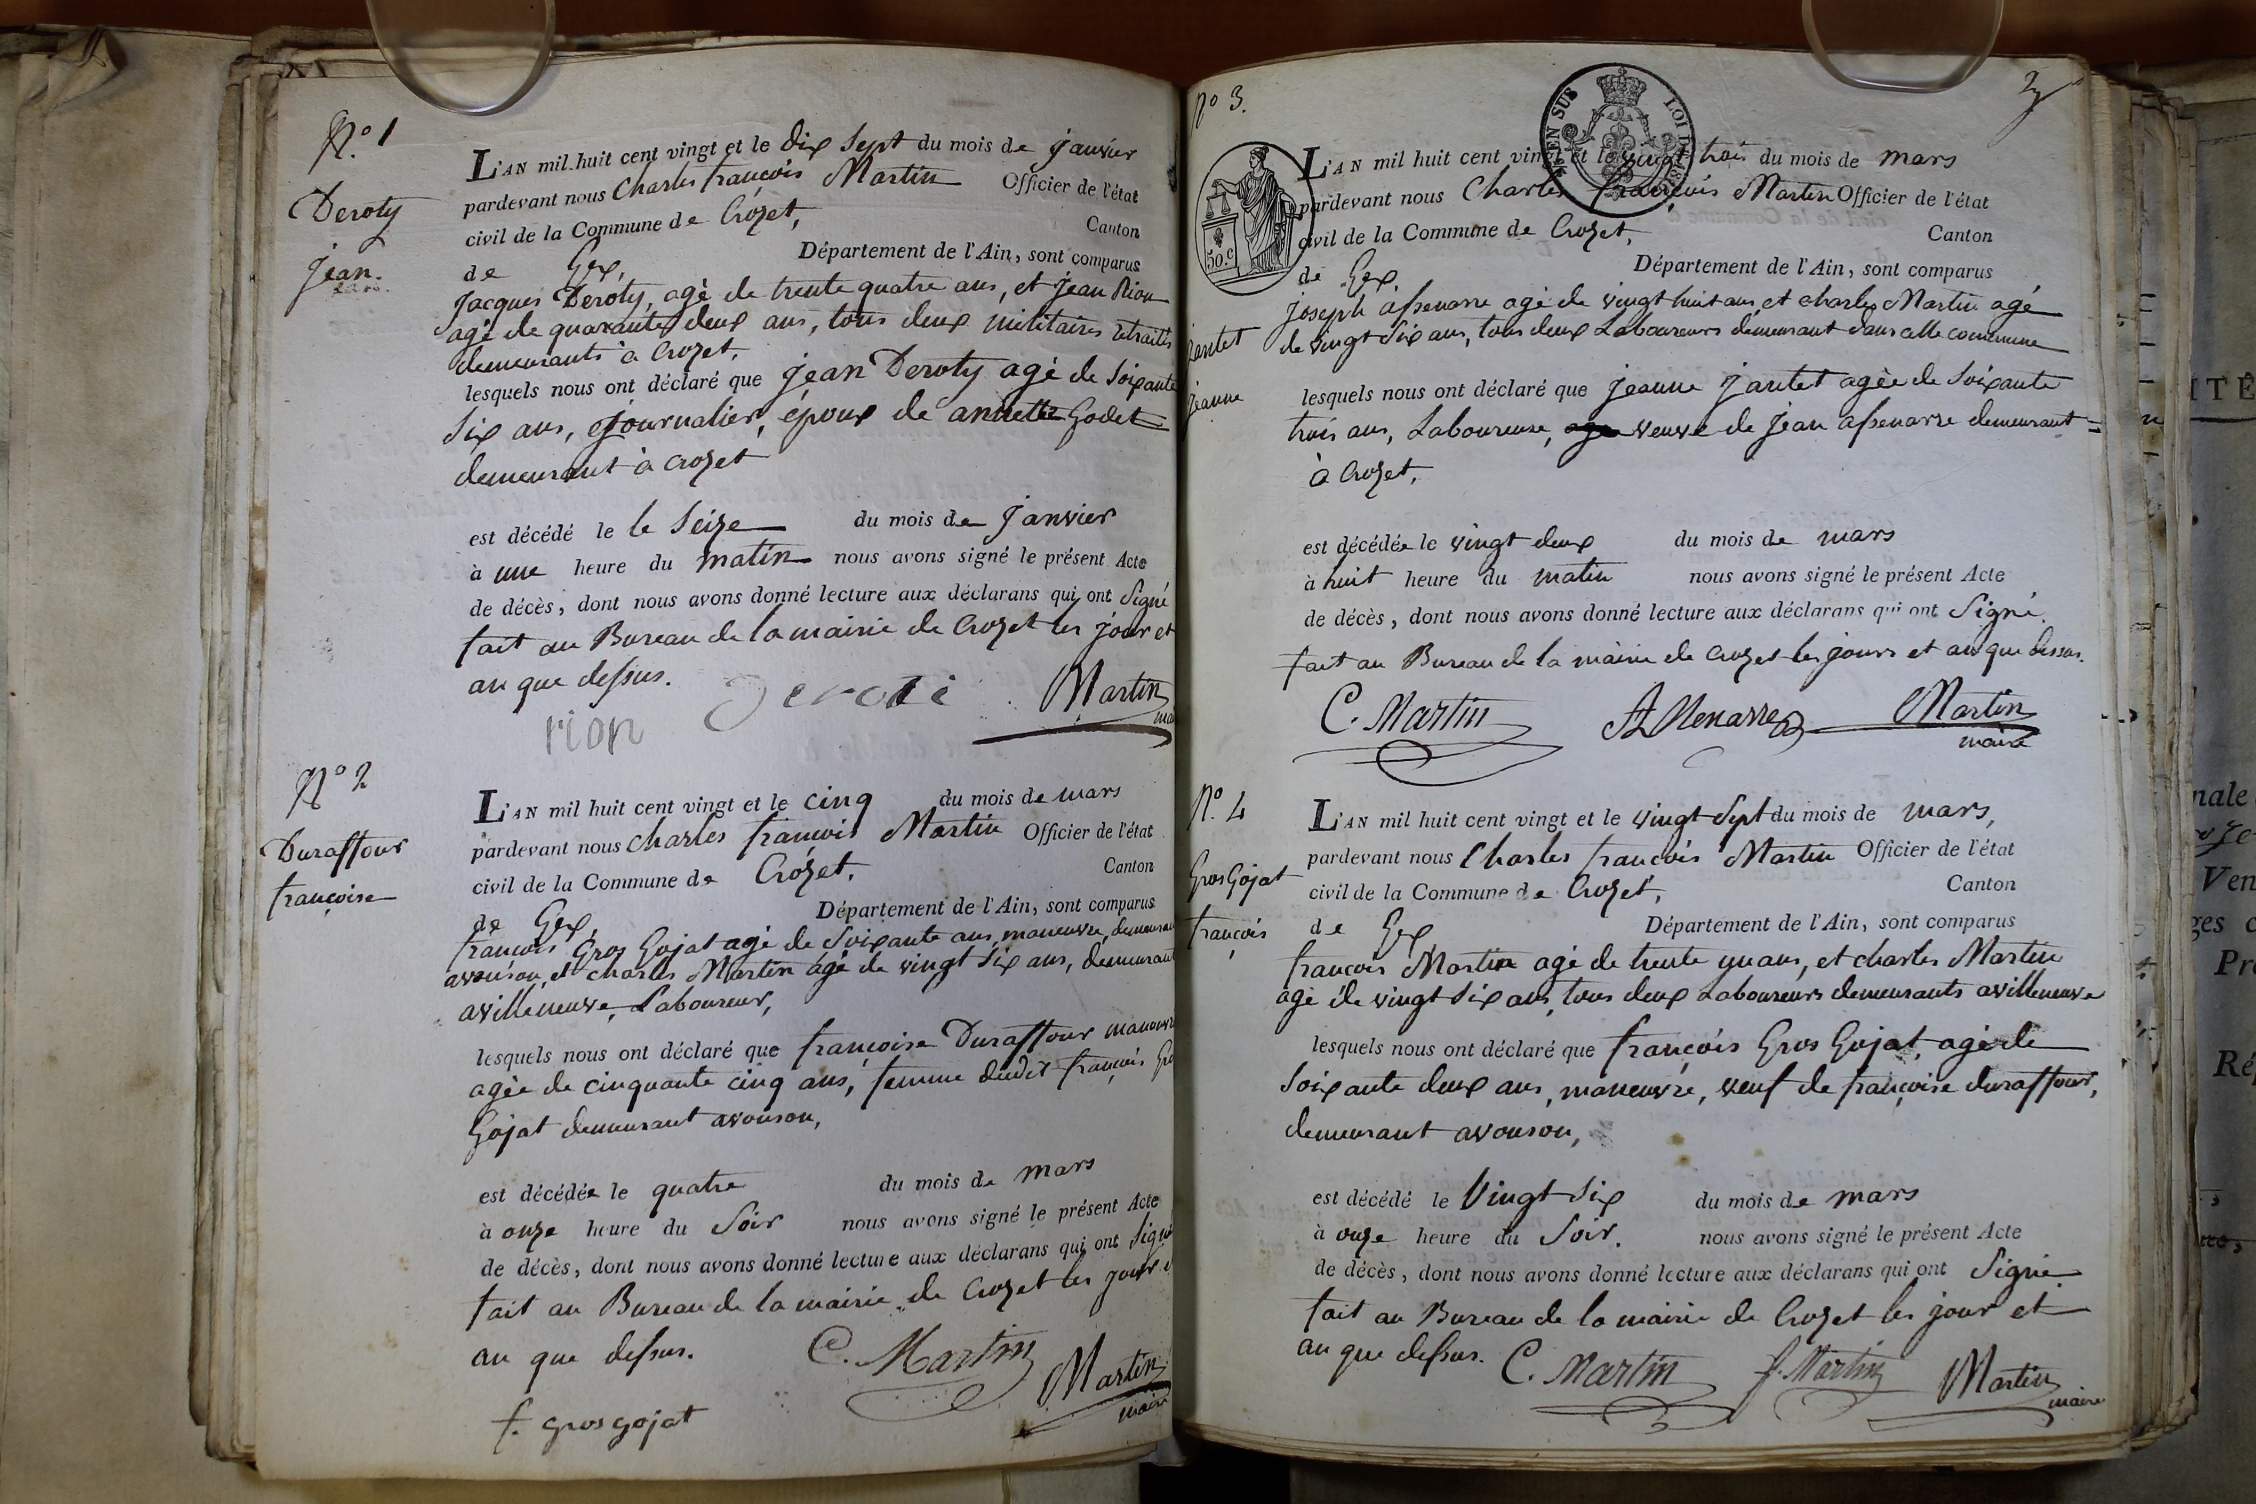 N.° 1
Deroty
jean.
L'AN mil huit cent vingt et le dix sept du mois de janvier
pardevant nous Charles françois Martin Officier de l'état
civil de la Commune de Crozet, Canton
de Gex, Département de l'Ain, sont comparus
jacques Deroty, agé de trente quatre ans, et jean Rion
agé de quarante deux ans, tous deux militaires retraités
demeurants à Crozet,
lesquels nous ont déclaré que jean Deroty agé de Soixante
Six ans, journalier, époux de annette Godet
demeurant à Crozet
est décédé le le Seize du mois de janvier
à une heure du matin nous avons signé le présent Acte
de décès, dont nous avons donné lecture aux déclarans qui ont Signé
fait au Bureau de la mairie de Crozet les jour et
an que dessus.
deroti
Martin
rion
N° 2
Duraffour
françoise
L'AN mil huit cent vingt et le cinq du mois de mars
pardevant nous charles françois Martin Officier de l'état
civil de la Commune de Crozet, Canton
de Gex, Département de l'Ain, sont comparus
françois Gros Gojat agé de Soixante ans, maneuvre,
avouson, et charles Martin agé de vingt Six ans, demeurant
avilleneuve, Laboureur,
lesquels nous ont déclaré que françoise Duraffour
agée de cinquante cinq ans, femme dudit françois Gros
Gojat demeurant avouson,
est décédée le quatre du mois de mars
à onze heure du Soir nous avons signé le présent Acte
de décès, dont nous avons donné lecture aux déclarans qui ont Signé
fait au Bureau de la mairie de Crozet les jour et
an que dessus.
C. Martin
Martin
maire
f. gros gojat
N° 3.
3
VISÉ EN SUS LOI DE
50.c
jantet
jeanne
L'AN mil huit cent vingt et le vingt trois du mois de mars
pardevant nous Charles françois Martin Officier de l'état
civil de la Commune de Crozet, Canton
de Gex, Département de l'Ain, sont comparus
joseph assenarre agé de vingt huit ans et charles Martin agé
de vingt Six ans, tous deux Laboureurs demeurant dans cette commune
lesquels nous ont déclaré que jeanne jantet agée de Soixante
trois ans, Laboureuse, veuve de jean assenarre demeurant
à Crozet,
est décédée le vingt deux du mois de mars
à huit heure du matin nous avons signé le présent Acte
de décès, dont nous avons donné lecture aux déclarans qui ont Signé.
fait au Bureau de la mairie de Crozet les jours et an que dessus.
C. Martin
Martin
maire
N°. 4
Gros Gojat
françois
L'AN mil huit cent vingt et le vingt Sept du mois de mars,
pardevant nous Charles françois Martin Officier de l'état
civil de la Commune de Crozet, Canton
de Gex Département de l'Ain, sont comparus
françois Martin agé de trente un ans, et charles Martin
agé de vingt Six ans, tous deux Laboureurs demeurants avilleneuve
lesquels nous ont déclaré que françois Gros Gojat, agé de
Soixante deux ans, maneuvre, veuf de françoise duraffour,
demeurant avouson,
est décédé le Vingt Six du mois de mars
à onze heure du Soir. nous avons signé le présent Acte
de décès, dont nous avons donné lecture aux déclarans qui ont Signé.
fait au Bureau de la mairie de Crozet les jour et
an que dessus.
C. Martin
f. Martin
Martin
maire